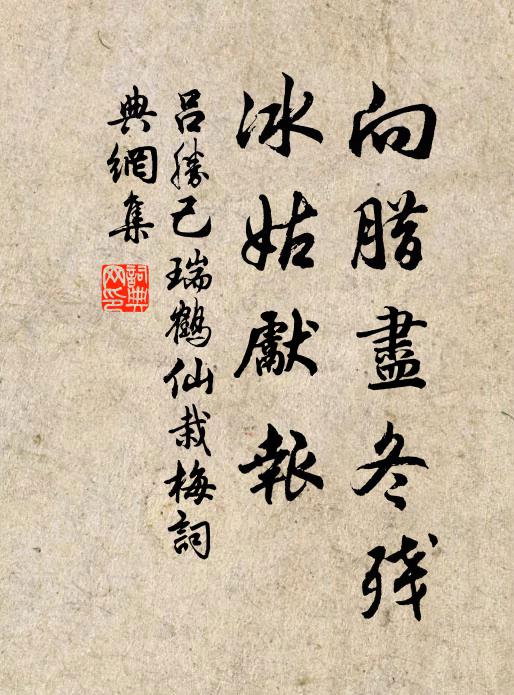 向腊盡冬残
冰姑獻報
吕勝己瑞鶴仙栽梅詞
典網集
詞典網印